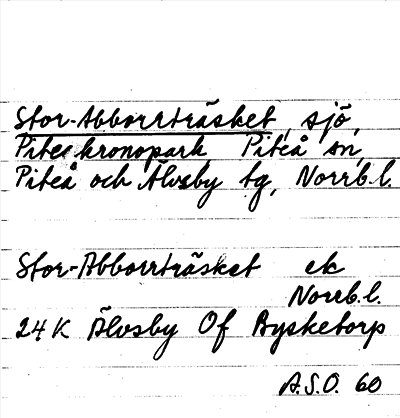 Stor-Abborrträsket, sjö,
Piteå kronopark, Piteå sn,
Piteå och Älvsby tg, Norrb.l.
Stor-Abborrträsket ek
Norrb.l.
24 K Älvsby Of Bysketorp
A.S.O. 60